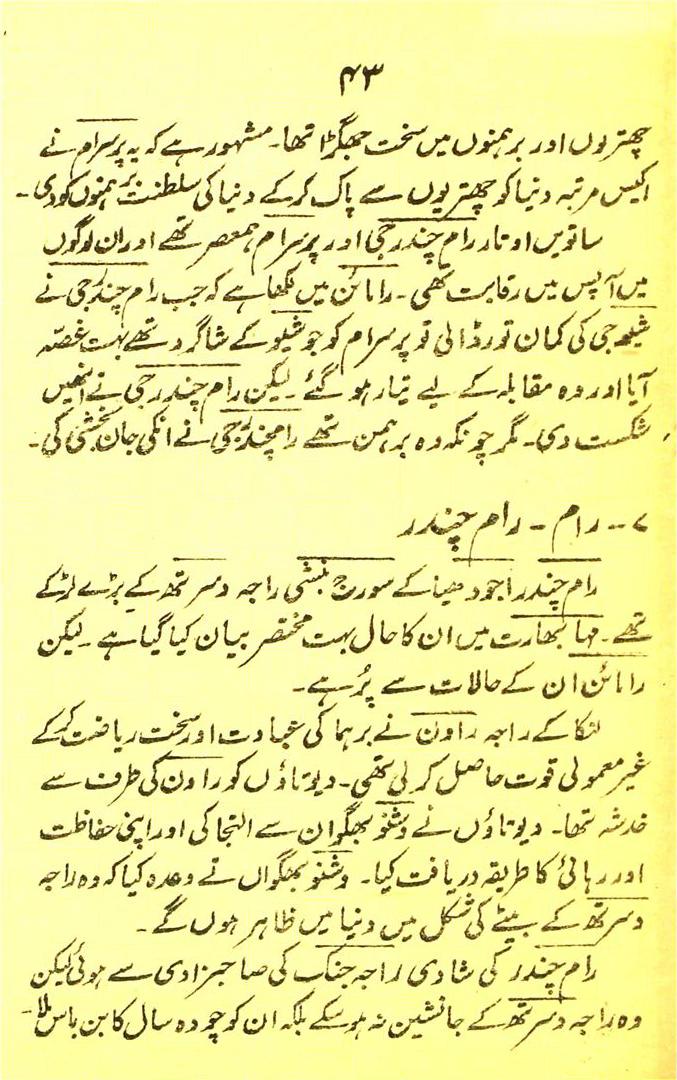 ۴۳
چھتریوں اور برہمنوں میں سخت جھگڑا تھا۔ مشہور ہے کہ یہ پرسرام نے
اکیس مرتبہ دنیا کو چھتریوں سے پاک کرکے دنیا کی سلطنت برہمنوں کو دی۔
ساتویں اوتار رام چندر جی اور پرسرام ہمعصر تھے اور ان لوگوں
میں آپس میں رقابت تھی۔ رامائن میں لکھا ہے کہ جب رام چندر جی نے
شیوجی کی کمان توڑ ڈالی تو پرسرام کو جو شیو کے شاگرد تھے بہت غصّہ
آیا اور وہ مقابلہ کے لیے تیار ہو گئے۔ لیکن رام چندر جی نے انھیں
شکست دی۔ مگر چونکہ وہ برہمن تھے رامچندر جی نے انکی جان بخشی کی۔
۷۔۔ رام ۔ رام چندر
رام چندر اجودھیا کے سورج بنشی راجہ دسرتھ کے بڑے لڑکے
تھے۔ مہا بھارت میں ان کا حال بہت مختصر بیان کیا گیا ہے۔ لیکن
رامائن ان کے حالات سے پُر ہے۔
لنکا کے راجہ راون نے برہما کی عبادت اور سخت ریاضت کرکے
غیر معمولی قوت حاصل کر لی تھی۔ دیوتاؤں کو راون کی طرف سے
خدشہ تھا۔ دیوتاؤں نے وشنو بھگوان سے التجا کی اور اپنی حفاظت
اور رہائی کا طریقہ دریافت کیا۔ وشنو بھگواں نے وعدہ کیا کہ وہ راجہ
دسرتھ کے بیٹے کی شکل میں دنیا میں ظاہر ہوں گے۔
رام چندر کی شادی راجہ جنک کی صاحبزادی سے ہوئی لیکن
وہ راجہ دسرتھ کے جانشین نہ ہوسکے بلکہ ان کو چودہ سال کا بن باس ملا۔